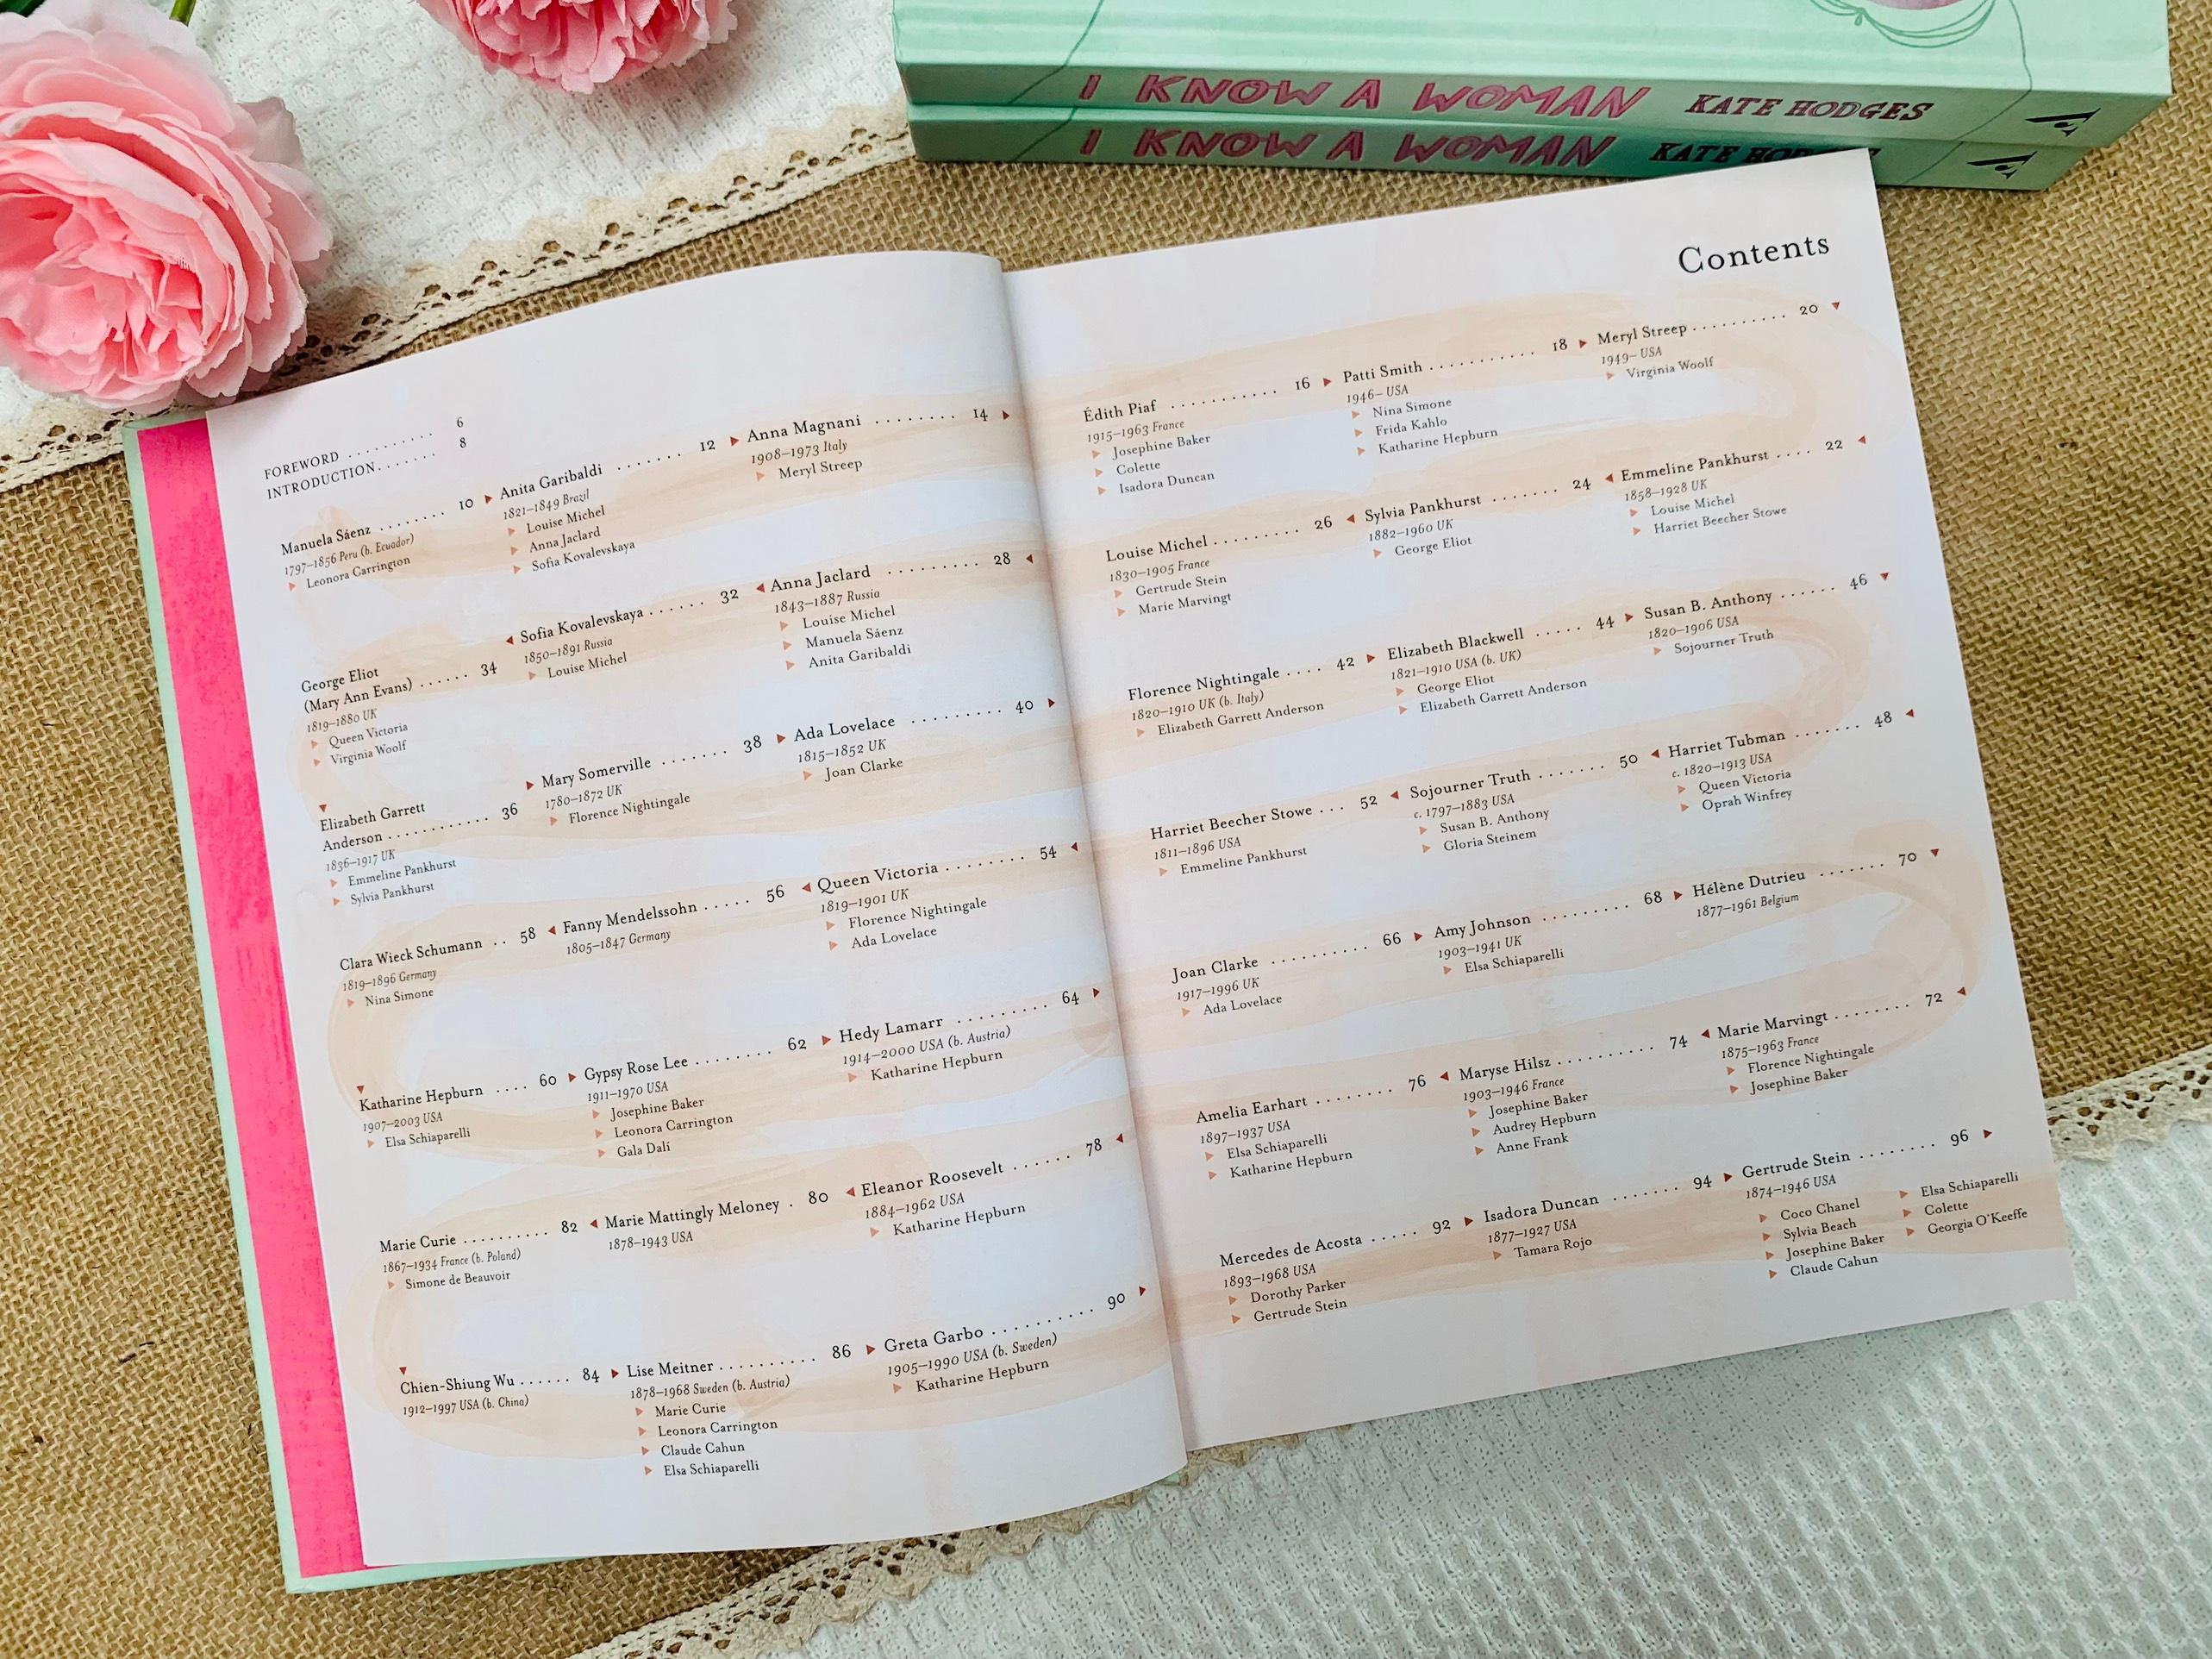 I KNOW A WOMAN KATE HODGES
I KNOW A WOMAN KATE
Contents
FOREWORD . . . . . . . . . . 6
INTRODUCTION . . . . . . . 8
Manuela Sáenz . . . . . . . . 10
1797–1856 Peru (b. Ecuador)
Leonora Carrington
Anita Garibaldi . . . . . . . 12
1821–1849 Brazil
Louise Michel
Anna Jaclard
Sofia Kovalevskaya
Anna Magnani . . . . . . . . . 14
1908–1973 Italy
Meryl Streep
Sofia Kovalevskaya . . . . . . 32
1850–1891 Russia
Louise Michel
Anna Jaclard . . . . . . . . . 28
1843–1887 Russia
Louise Michel
Manuela Sáenz
Anita Garibaldi
George Eliot
(Mary Ann Evans) . . . . . . 34
1819–1880 UK
Queen Victoria
Virginia Woolf
Elizabeth Garrett
Anderson . . . . . . . . . . . . 36
1836–1917 UK
Emmeline Pankhurst
Sylvia Pankhurst
Mary Somerville . . . . . . . . 38
1780–1872 UK
Florence Nightingale
Ada Lovelace . . . . . . . . . 40
1815–1852 UK
Joan Clarke
Clara Wieck Schumann . . 58
1819–1896 Germany
Nina Simone
Fanny Mendelssohn . . . . . 56
1805–1847 Germany
Queen Victoria . . . . . . . . 54
1819–1901 UK
Florence Nightingale
Ada Lovelace
Katharine Hepburn . . . . 60
1907–2003 USA
Elsa Schiaparelli
Gypsy Rose Lee . . . . . . . . 62
1911–1970 USA
Josephine Baker
Leonora Carrington
Gala Dalí
Hedy Lamarr . . . . . . . . . 64
1914–2000 USA (b. Austria)
Katharine Hepburn
Marie Curie . . . . . . . . . . 82
1867–1934 France (b. Poland)
Simone de Beauvoir
Marie Mattingly Meloney . 80
1878–1943 USA
Eleanor Roosevelt . . . . . . 78
1884–1962 USA
Katharine Hepburn
Chien-Shiung Wu . . . . . . 84
1912–1997 USA (b. China)
Lise Meitner . . . . . . . . . . 86
1878–1968 Sweden (b. Austria)
Marie Curie
Leonora Carrington
Claude Cahun
Elsa Schiaparelli
Greta Garbo . . . . . . . . . . 90
1905–1990 USA (b. Sweden)
Katharine Hepburn
Édith Piaf . . . . . . . . . . . 16
1915–1963 France
Josephine Baker
Colette
Isadora Duncan
Patti Smith . . . . . . . . . . 18
1946– USA
Nina Simone
Frida Kahlo
Katharine Hepburn
Meryl Streep . . . . . . . . . . 20
1949– USA
Virginia Woolf
Louise Michel . . . . . . . . . 26
1830–1905 France
Gertrude Stein
Marie Marvingt
Sylvia Pankhurst . . . . . . . 24
1882–1960 UK
George Eliot
Emmeline Pankhurst . . . . 22
1858–1928 UK
Louise Michel
Harriet Beecher Stowe
Florence Nightingale . . . . 42
1820–1910 UK (b. Italy)
Elizabeth Garrett Anderson
Elizabeth Blackwell . . . . . 44
1821–1910 USA (b. UK)
George Eliot
Elizabeth Garrett Anderson
Susan B. Anthony . . . . . . 46
1820–1906 USA
Sojourner Truth
Harriet Beecher Stowe . . . 52
1811–1896 USA
Emmeline Pankhurst
Sojourner Truth . . . . . . . 50
c. 1797–1883 USA
Susan B. Anthony
Gloria Steinem
Harriet Tubman . . . . . . . 48
c. 1820–1913 USA
Queen Victoria
Oprah Winfrey
Joan Clarke . . . . . . . . . . 66
1917–1996 UK
Ada Lovelace
Amy Johnson . . . . . . . . . 68
1903–1941 UK
Elsa Schiaparelli
Hélène Dutrieu . . . . . . . 70
1877–1961 Belgium
Amelia Earhart . . . . . . . . 76
1897–1937 USA
Elsa Schiaparelli
Katharine Hepburn
Maryse Hilsz . . . . . . . . . . 74
1903–1946 France
Josephine Baker
Audrey Hepburn
Anne Frank
Marie Marvingt . . . . . . . . 72
1875–1963 France
Florence Nightingale
Josephine Baker
Mercedes de Acosta . . . . . 92
1893–1968 USA
Dorothy Parker
Gertrude Stein
Isadora Duncan . . . . . . . 94
1877–1927 USA
Tamara Rojo
Gertrude Stein . . . . . . . . 96
1874–1946 USA
Coco Chanel
Sylvia Beach
Josephine Baker
Claude Cahun
Elsa Schiaparelli
Colette
Georgia O'Keeffe